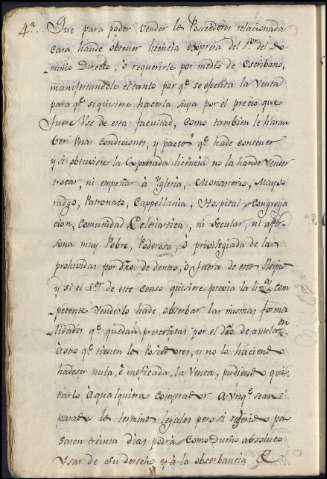 4ª.. Que para poder vender los Poseedores relacionada
casa hande obtener licencia expresa del Sʳ. del Do-
minio Directo, ò requerirle por medio de Escribano,
manifestandole el tanto por qᵉ se efectua la Venta
para qᵉ si quisiere hacerla suya por el precio que
fuere Use de esta facultad, como tambien le haran
ver las condiciones, y pactos qᵉ hade contener
y si obtuviere la Expresada licencia no la hande Vender
trocar, ni empeñar à Yglecia, Monasterio, Mayo-
razgo, Patronato, Capellania, Hospital, Congrega
cion, Comunidad Eclesiastica, ni secular, ni à Per-
sona muy Pobre, Poderosa, ò privilegiada de las
prohividas por dro, de dentro, ò fuera de este Reyno
y si el Sʳ. de este Censo quisiere previa la com
petente Venderlo hade observar las mismas forma
lidades qᵉ quedan prescriptas por el dro. de
ò tienen los Poseedores, y no lo haciendo
hadeser nula, è ineficaz, la Venta, pudiendo qui-
tarlo à qualquiera comprador
los terminos legales pero si pa
saren treinta dias podrá como dueño absoluto
Usar de su derecho y à la observancia &